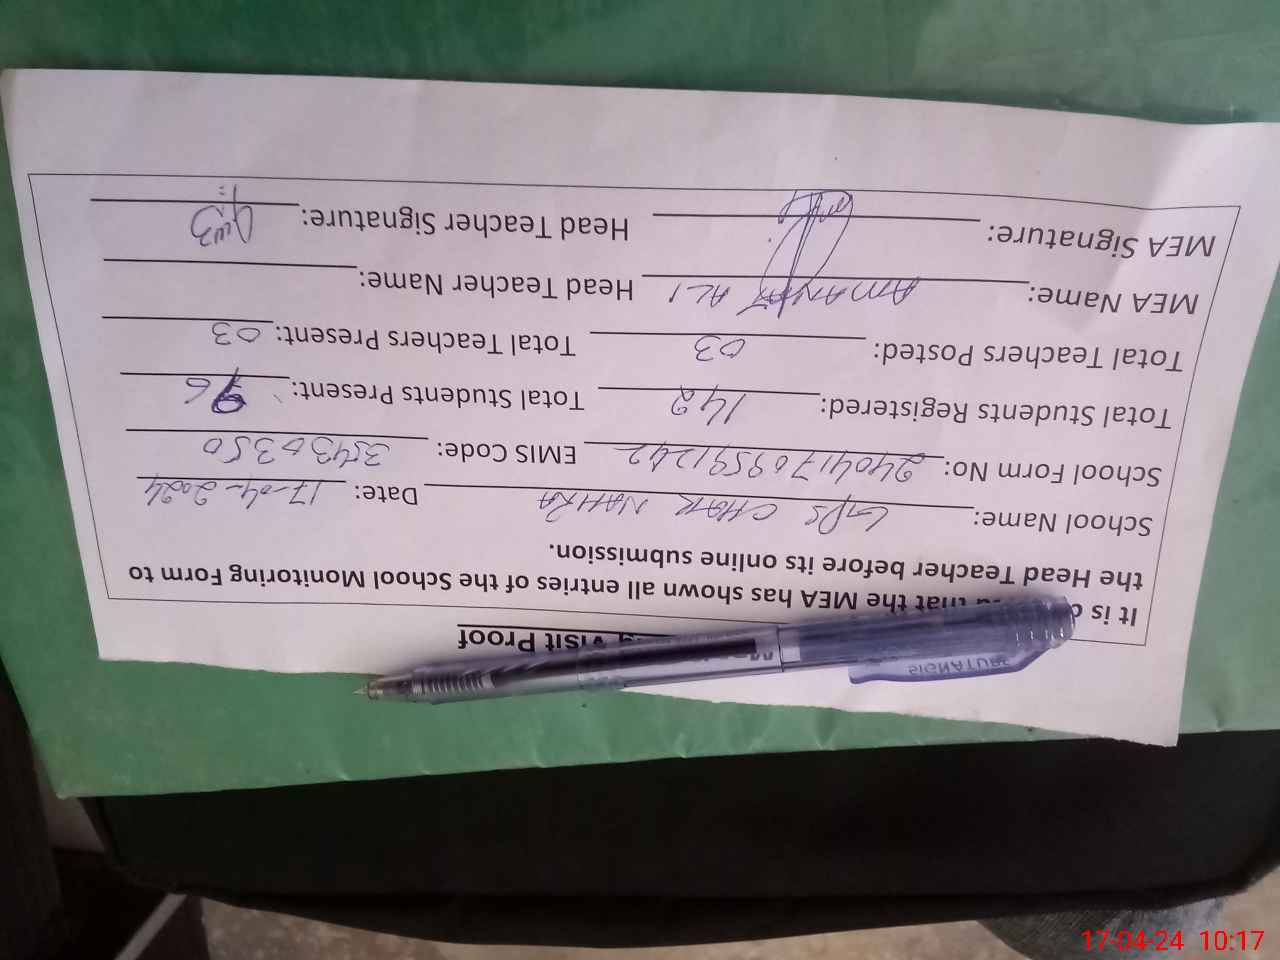 Visit Proof
It is that the MEA has shown all entries of the School Monitoring Form to
the Head Teacher before its online submission.
School Name: GPS CHAK NAHRA Date: 17-04-2024
School Form No: 24041709591242 EMIS Code: 35430350
Total Students Registered: 142 Total Students Present: 96
Total Teachers Posted: 03 Total Teachers Present: 03
MEA Name: AMANAT ALI Head Teacher Name:
MEA Signature: Head Teacher Signature:
SIGNATURE
17-04-24 10:17